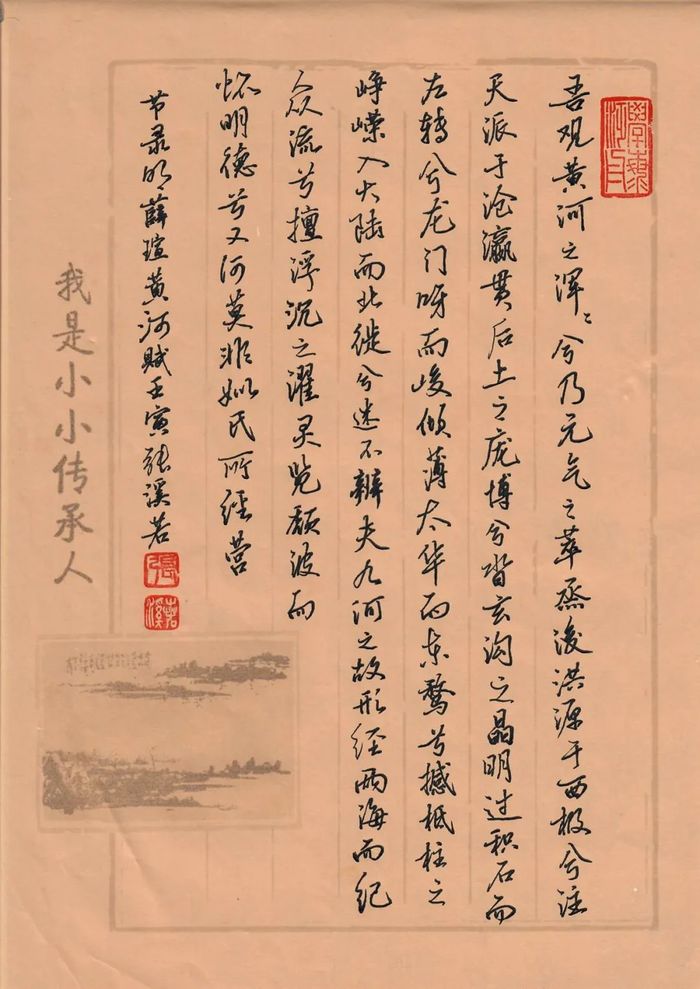 吾观黄河之浑〻兮乃元气之萃蒸浚洪源于西极兮注
天派于沧瀛贯后土之庞博兮沓玄沟之晶明过积石而
左转兮龙门呀而峻倾薄太华而东骛兮撼柢柱之
峥嵘入大陆而北徙兮迷不辨夫九河之故形经两海而纪
众流兮擅浮沉之濯灵览颓波而
怀明德兮又河莫非姒氏所经营
节录明薛瑄黄河赋壬寅张溪若
我是小小传承人